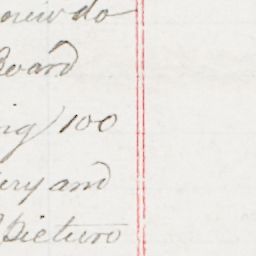 do
Board
ing 100
ery and
Picture